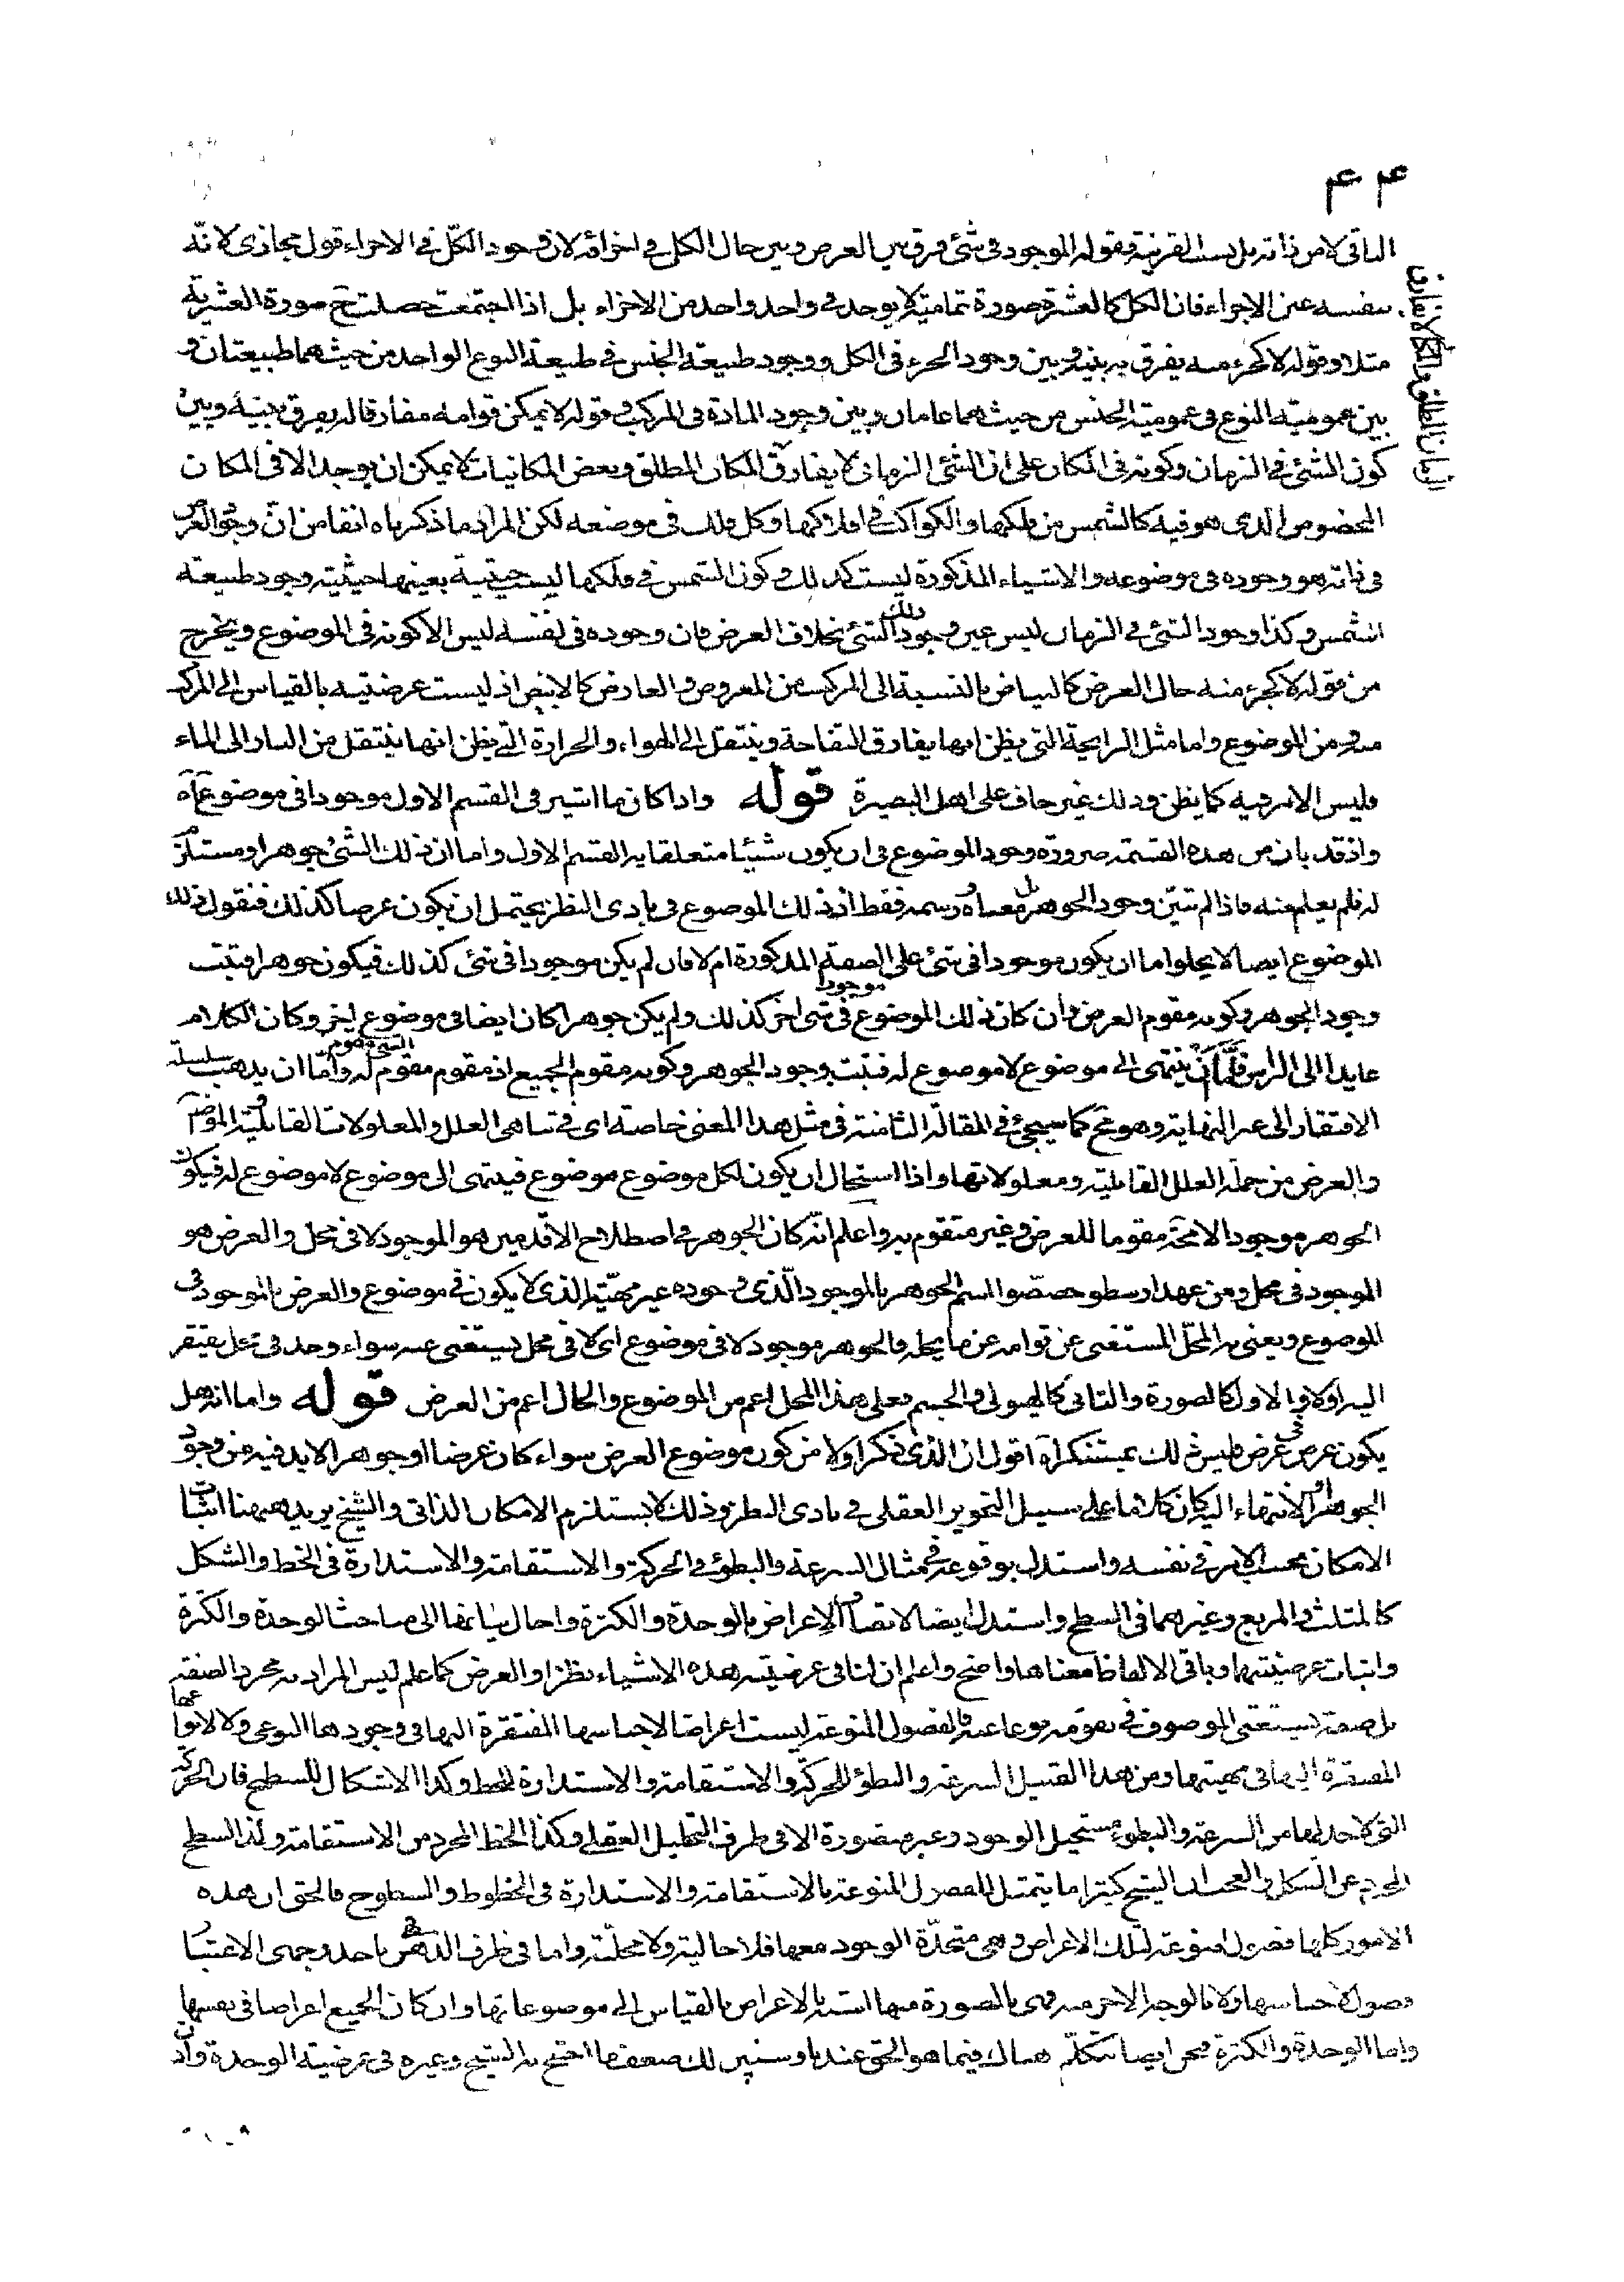 ۴۴
الباقی لا من ذاته بل بسبب القرینة وقوله الموجود فی شئ فرق بین العرض وبین حال الکل فی اجزائه لان وجود الکلّ فی الاجزاء قول مجازی لانّه
بنفسه عین الاجزاء فان الکل کالعشرة صورة تمامیته لا یوجد فی واحد واحد من الاجزاء بل اذا اجتمعت حصلت ح صورة العشریة
مثلا وقوله لا کجزء منه یفرق به بینه وبین وجود الجزء فی الکل ووجود طبیعة الجنس فی طبیعة النوع الواحد من حیث هما طبیعتان و
بین عمومیة النوع فی عمومیة الجنس من حیث هما عامان وبین وجود المادة فی المرکب وقوله لا یمکن قوامه مفارقا له یفرق بینه وبین
کون الشئ فی الزمان وکونه فی المکان علی ان الشئ الزمانی لا یفارق المکان المطلق وبعض المکانیات لا یمکن ان یوجد الا فی المکان
الزمان المطلق والمکانی لا یفارق
المخصوص الذی هو فیه کالشمس من فلکها والکواکب فی افلاکها وکل فلک فی موضعه لکن المراد ما ذکرناه انفا من انّ وجود العرض
فی ذاته هو وجوده فی موضوعه والاشیاء المذکورة لیست کذلک وکون الشمس فی فلکها لیست حیثیة بعینها حیثیة وجود طبیعة
الشمس وکذا وجود الشئ فی الزمان لیس عین وجود ذلک الشئ بخلاف العرض فان وجوده فی نفسه لیس الا کونه فی الموضوع ویخرج
من قوله لا کجزء منه حال العرض کالبیاض بالنسبة الی المرکب من المعروض والعارض کالابیض اذ لیست عرضیته بالقیاس الی المرکب
منه ومن الموضوع واما مثل الرایحة التی یظن انها یفارق التفاحة وینتقل الی الهواء والحرارة التی یظن انها ینتقل من النار الی الماء
فلیس الامر فیه کما یظن وذلک غیر خاف علی اهل البصیرة قوله واذا کان ما اشیر فی القسم الاول موجودا فی موضوع آه
واذ قد بان من هذه القسمة ضرورة وجود الموضوع فی ان یکون شیئا متعلقا به القسم الاول واما ان ذلک الشئ جوهر او مستلزم
له فلم یعلم منه فاذا لم یتبیّن وجود الجوهر بل معناه ورسمه فقط اذ ذلک الموضوع فی بادی النظر یحتمل ان یکون عرضا کذلک فنقول ذلک
الموضوع ایضا لا یخلو اما ان یکون موجودا فی شئ علی الصفة المذکورة ام لا فان لم یکن موجودا فی شئ کذلک فیکون جوهرا فثبت
وجود الجوهر وکونه مقوم العرض وان کان ذلک الموضوع موجودا فی شئ اخر کذلک ولم یکن جوهرا کان ایضا فی موضوع اخر وکان الکلام
عایدا الی الراس فامّا ان ینتهی الی موضوع لا موضوع له فثبت وجود الجوهر وکونه مقوم الجمیع اذ مقوم مقوم الشئ مقوم له وامّا ان یذهب سلسلة
الافتقار الی غیر النهایة وهو مح کما سیجئ فی المقالة الثامنة فی مثل هذا المعنی خاصة ای فی تناهی العلل والمعلولات القابلیة والموضوع
والعرض من جملة العلل القابلیة ومعلولاتها واذا استحال ان یکون لکل موضوع موضوع فینتهی الی موضوع لا موضوع له فیکون
الجوهر موجودا لا محة مقوما للعرض وغیر متقوم به واعلم انّه کان الجوهر فی اصطلاح الاقدمین هو الموجود لا فی محل والعرض هو
الموجود فی محل ومن عهد ارسطو خصّصوا اسم الجوهر بالموجود الّذی وجوده غیر مهیّته الذی لا یکون فی موضوع والعرض بالموجود فی
الموضوع ویعنی به المحلّ المستغنی عن قوامه عن ما یحله فالجوهر موجود لا فی موضوع ای لا فی محل یستغنی عنه سواء وجد فی محل یفتقر
الیه اولا والاول کالصورة والثانی کالهیولی والجسم فعلی هذا المحل اعم من الموضوع والحال اعم من العرض قوله واما انه هل
یکون عرض فی عرض فلیس ذلک بمستنکر آه اقول ان الذی ذکر اولا من کون موضوع العرض سواء کان عرضا او جوهرا لا بد فیه من وجود
الجوهر والانتهاء الیه کان کلاما علی سبیل التجویز العقلی فی بادی النظر وذلک لا یستلزم الامکان الذاتی والشیخ یرید هیهنا اثبات
الامکان بحسب الامر فی نفسه واستدل بوقوعه فی مثال السرعة والبطؤ فی الحرکة والاستقامة والاستدارة فی الخط والشکل
کالمثلث والمربع وغیرهما فی السطح واستدل ایضا لاتصاف الاعراض بالوحدة والکثرة واحال بیانها الی مباحث الوحدة والکثرة
واثبات عرضیتهما وباقی الالفاظ معناها واضح واعلم ان لنا فی عرضیة هذه الاشیاء نظرا والعرض کما علم لیس المراد به مجرد الصفة
بل صفة یستغنی الموصوف فی تقومه نوعا عنها والفصول المنوعة لیست اعراضا لاجناسها المفتقرة الیها فی وجودها النوعی ولا لانواعها
المفتقرة الیها فی مهیتها ومن هذا القبیل السرعة والبطؤ للحرکة والاستقامة والاستدارة للخط وکذا الاشکال للسطح فان الحرکة
التی لا حد لها من السرعة والبطؤ مستحیل الوجود وغیر متصورة الا فی ظرف التحلیل العقلی وکذا الخط المجرد من الاستقامة وکذا السطح
المجرد عن الشکل والعجب ان الشیخ کثیرا ما یتمثل للفصول المنوعة بالاستقامة والاستدارة فی الخطوط والسطوح فالحق ان هذه
الامور کلها فصول منوعة لتلک الاعراض وهی متحدّة الوجود معها فلا حالیة ولا محلیّة واما فی ظرف الذهن باحد وجهی الاعتبار
فصول لاجناسها ولا بالوجه الاخر منه فهی بالصورة منها اشبه بالاعراض بالقیاس الی موضوعاتها وان کان الجمیع اعراضا فی نفسها
واما الوحدة والکثرة فنحن ایضا نتکلّم هناک فیما هو الحق عندنا وسنبین لک ضعف ما احتج به الشیخ وغیره فی عرضیة الوحدة وان